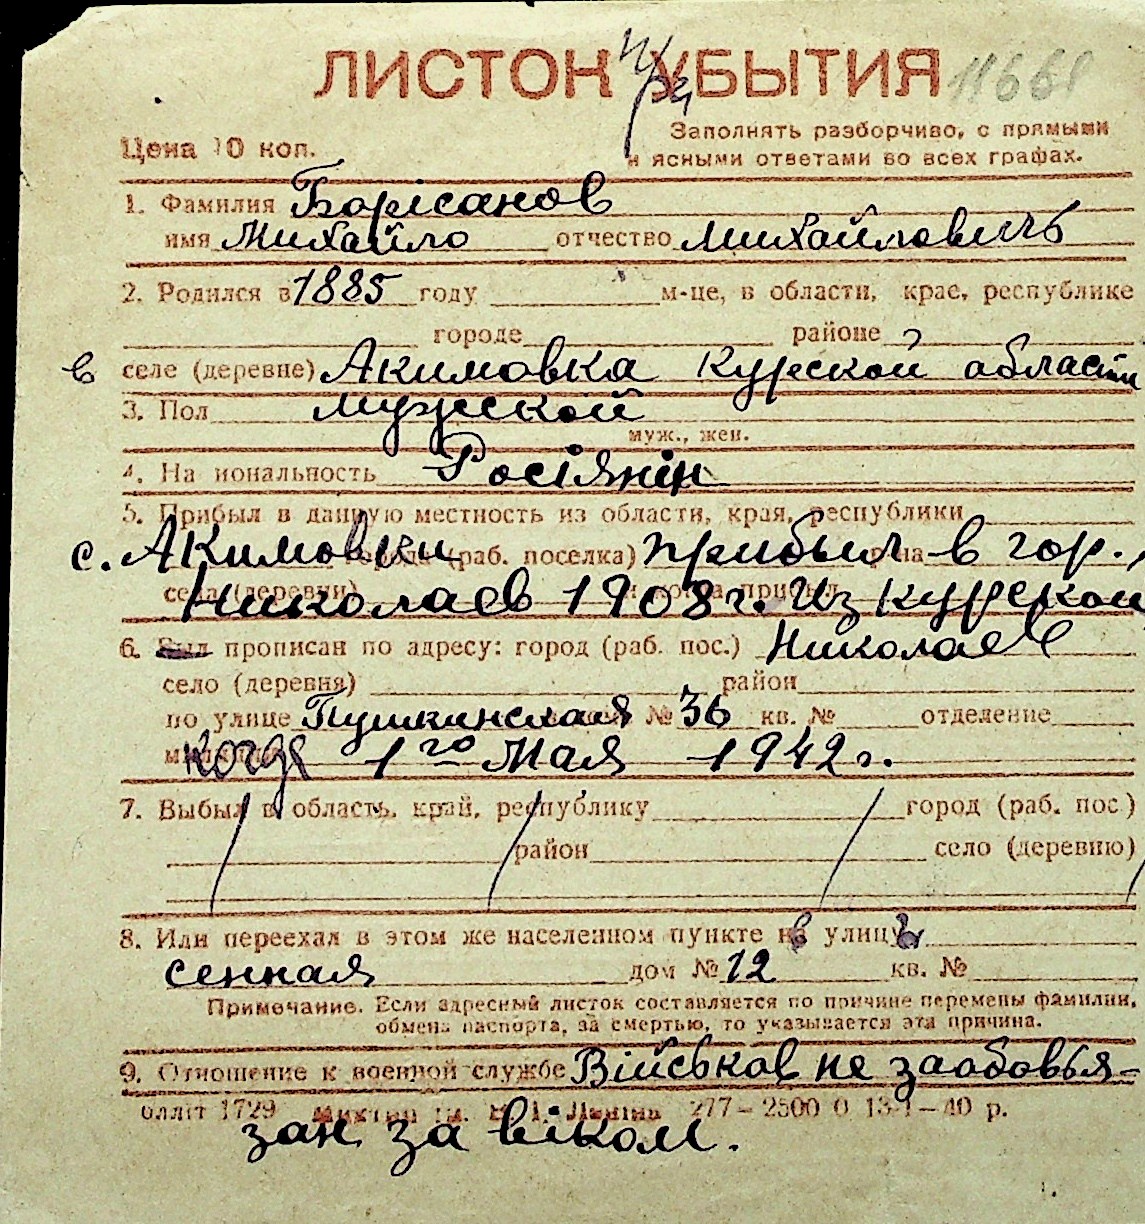 ЛИСТОК УБЫТИЯ 11661
Цена 10 коп.
Заполнять разборчиво, с прямыми
и ясными ответами во всех графах.
1. Фамилия Борісанов
имя Михайло отчество Михайловичъ
2. Родился в 1885 году м-це, в области, крае, республике
городе районе
в селе (деревне) Акимовка Курской области
3. Пол мужской
муж., жен.
4. Национальность Росіянін
5. Прибыл в данную местность из области, края, республики
с. Акимовки города (раб. поселка) прибыл в гор.
села (деревни) Николаев 1908 г. Из курской
6. Был прописан по адресу: город (раб. пос.) Николаев
село (деревня) район
по улице Пушкинская № 36 кв. № отделение
когда 1го Мая 1942 г.
7. Выбыл в область, край, республику город (раб. пос)
район село (деревню)
8. Или переехал в этом же населенном пункте на улицу
сенная дом № 12 кв. №
Примечание. Если адресный листок составляется по причине перемены фамилии,
обмена паспорта, за смертью, то указывается эта причина.
9. Отношение к военной службе Військов не заобовья-
1729 277–2500 0 13-1–40 р.
зан за віком.